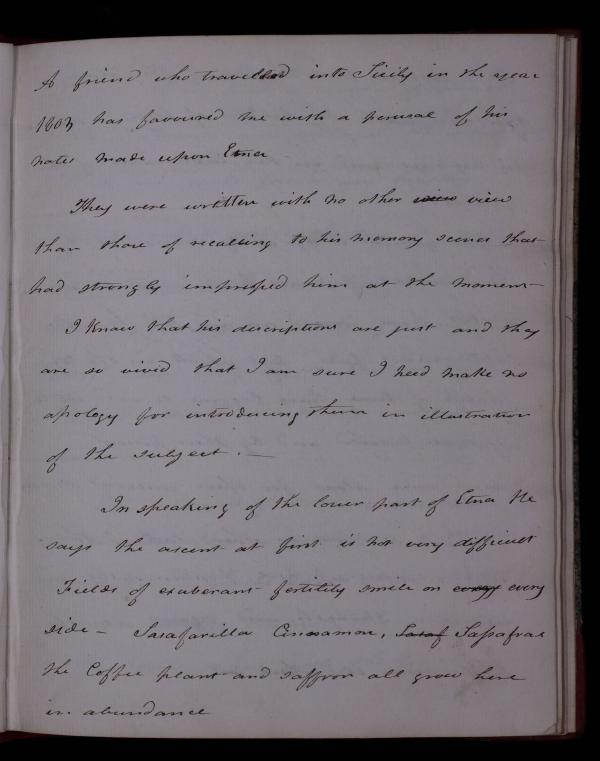 A friend who travelled into Sicily in the year
1803 has favoured me with a perusal of his
notes made upon Etna
They were written with no other view view
than those of recalling to his memory scenes that
had strongly impressed him at the moment
I know that his descriptions are just and they
are so vivid that I am sure I need make no
apology for introducing them in illustration
of the subject. —
In speaking of the lower part of Etna He
says the ascent at first is not very difficult
Fields of exuberant fertility smile on every every
side – Sasafarilla Cinnamon, Sasaf Sassafras
the Coffee plant and saffron all grow here
in abundance